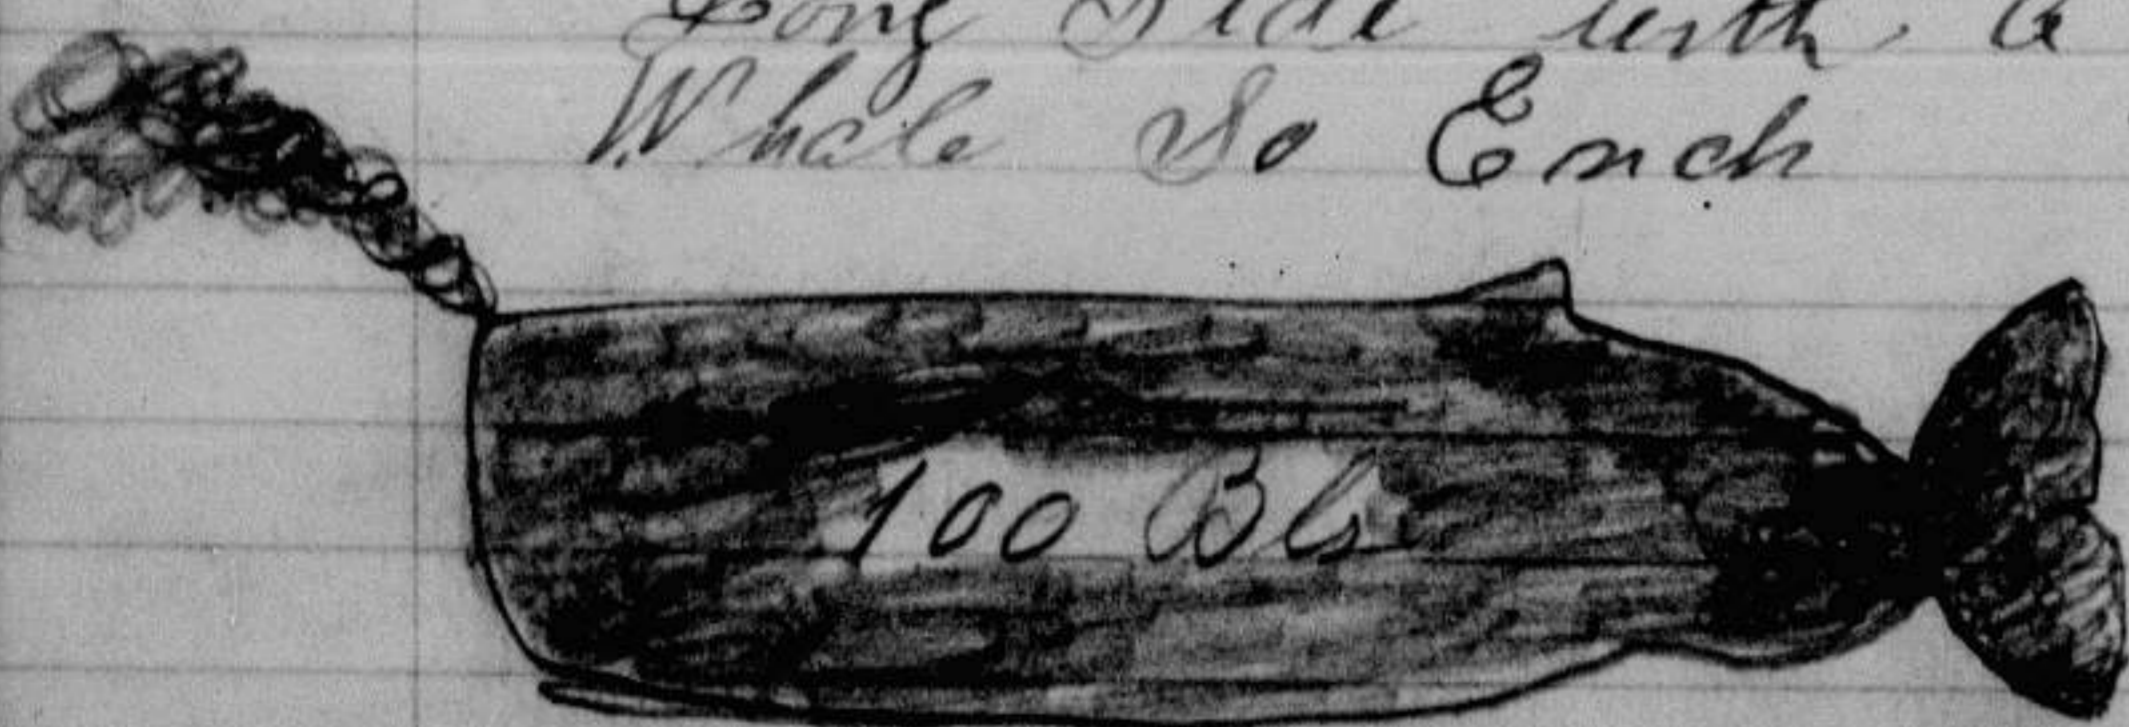 Long Side with a
Whale So Ends
100 Bls